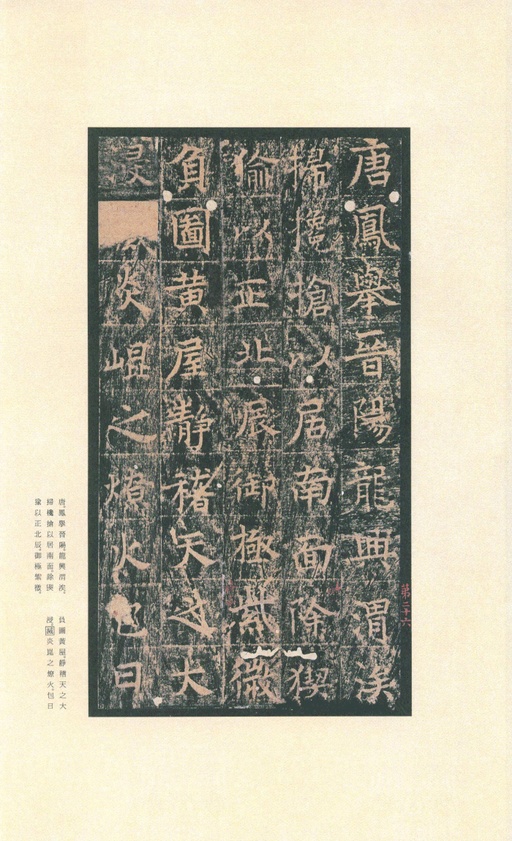 第二十六
唐鳳舉晉陽龍興渭涘
掃攙搶以居南面除猰
㺄以正北辰御極紫微
負圖黃屋靜稽天之大
浸炎崐之燎火包日
唐。鳳舉晉陽。龍興渭涘。
掃欃搶以居南面。除猰
㺄以正北辰。御極紫微。
負圖黃屋。靜稽天之大
浸。炎崑之燎火。包日